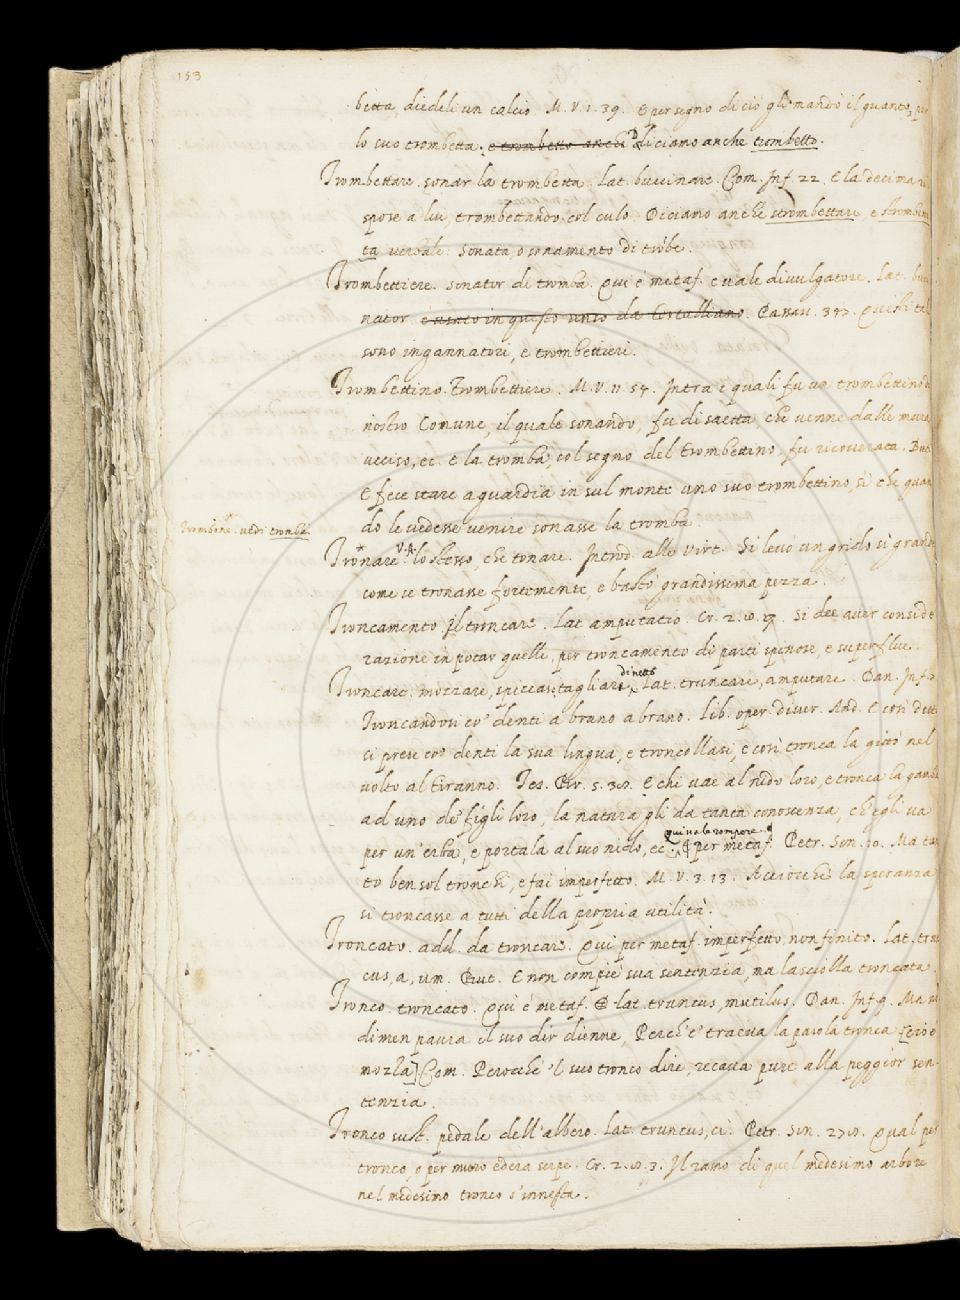 153
betta, diedeli un calcio. M. V. 1. 39. E per segno di ciò gli mandò il guanto, per
lo suo trombetta. e trombetto anche Diciamo anche trombetto.
Trombettare. sonar la trombetta. Lat. buccinare. Com. Inf. 22. E la decima ri
spose a lui, trombettando col culo. Diciamo anche strombettare, e strombet
ta verbale. sonata, o sonamento di trōbe.
Trombettiere. sonator di tromba. Qui è metaf. e vale divulgatore. Lat. buc
nator. e usato in questo senso da Tertulliano. Passav. 347. Questi tal
sono ingannatori, e trombettieri.
Trombettino. Trombettiere. M. V. 11. 54. Intra i quali fu un trombettino d
nostro Comune, il quale sonando, fu di saetta, che venne dalle mura
ucciso, ec. e la tromba, col segno del trombettino, fu ricoverata.
E fece stare a guardia in sul monte uno suo trombettino, sì che quan
do le vedesse venire sonasse la tromba.
Trombone. vedi tromba.
Tronare V.A. lo stesso, che tonare. Introd. alle Virt. Si levò un grido sì grande
come se tronasse fortemente, e bastò grandissima pezza.
Troncamento. Il troncare. Lat. amputatio. Cr. 2. Si dee aver conside
razione in potar quelle, per troncamento di parti spinose, e superflue.
Troncare. mozzare, spiccar, tagliare di netto. Lat. truncare, amputare. Dan. Inf. 7
Troncandosi co' denti a brano a brano. Lib. oper. diver. And. E così dett
si prese co' denti la sua lingua, e troncollasi, e così tronca la gittò nel
volto al Tiranno. Tes. Br. 5. E chi vae al nido loro, e tronca la gamba
ad uno de' figli loro, la natura gli da tanta conoscenza, ch'egli va
per un'erba, e portala al suo nido, ec. qui vale rompere. ¶ per metaf. Petr. Son. Ma tan
to ben sol tronchi, e fai imperfetto. M. V. 3. 13. Acciocchè la speranza
si troncasse a tutti della propria utilità.
Troncato. add. da troncare. Qui per metaf. imperfetto, non finito. Lat. trun
cus, a, um. But. E non compiè sua sentenzia, ma lasciolla troncata.
Tronco. troncato. Qui è metaf. lat. truncus, mutilus. Dan. Inf. 9. Ma n
dimen paura il suo dir dienne, Perch'e' traeva la parola tronca [cioè
mozza] Com. Perocchè 'l suo tronco dire, recava pure alla peggior sen-
tenzia.
Tronco sust. pedale dell'albero. lat. truncus, ci. Petr. Son. Qual per
tronco, o per muro edera serpe. Cr. 2. 3. Il ramo di quel medesimo arbore
nel medesimo tronco s'innesta.